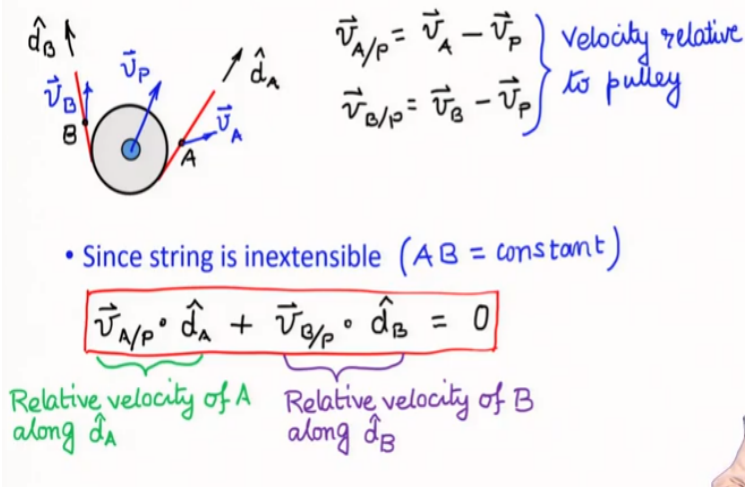 d̂_B
v⃗_P
d̂_A
v⃗_B
v⃗_A
B
A
v⃗_A/P = v⃗_A − v⃗_P
v⃗_B/P = v⃗_B − v⃗_P
velocity relative
to pulley
• Since string is inextensible (AB = constant)
v⃗_A/P · d̂_A + v⃗_B/P · d̂_B = 0
Relative velocity of A
along d̂_A
Relative velocity of B
along d̂_B